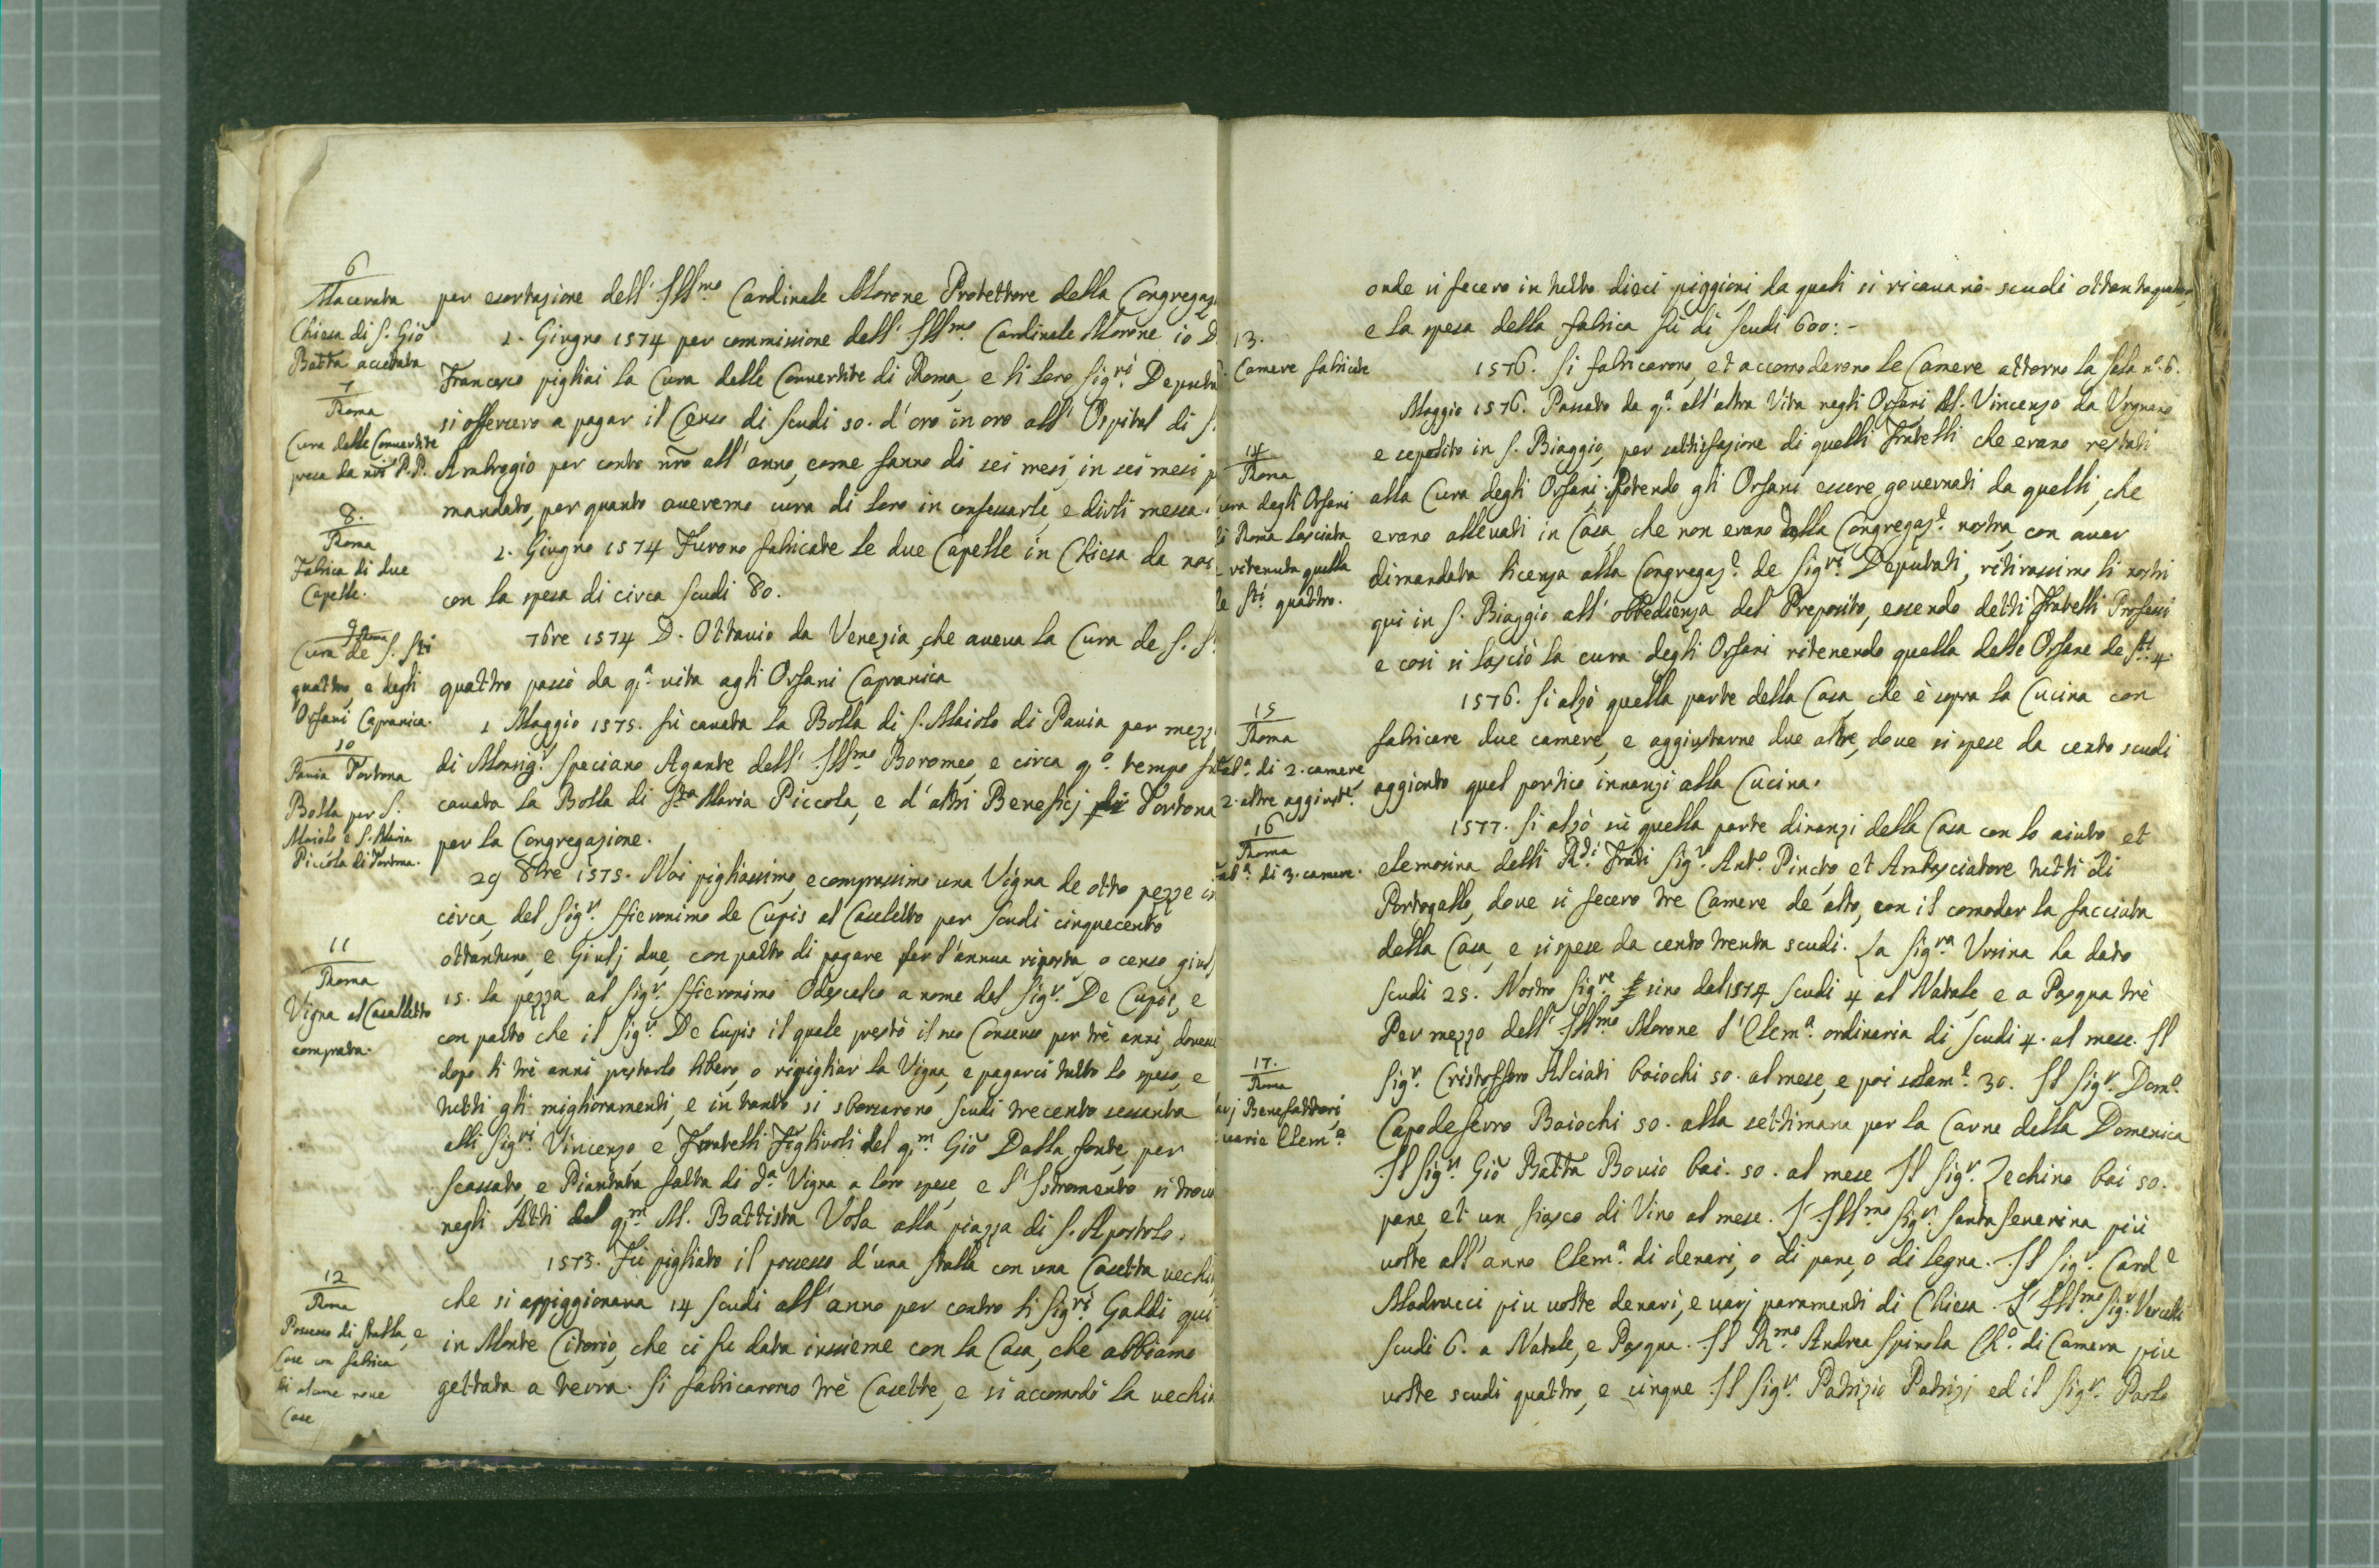 6
Macerata
Chiesa di S. Giõ
Batta accettata
7
Roma
Cura delle Convertite
presa da noi P.P.
8.
Roma
Fabrica di due
Capelle.
9 Roma
Cura de S. Sti
quattro, e degli
Orfani Capranica.
10
Pavia Tortona
Bolla per S.
Maiolo e S. Maria
Piccola di Tortona.
11
Roma
Vigna al Casalletto
comprata.
12
Roma
Possesso di stalla, e
Case con fabrica
di alcune nove
Case
per esortazione dell' Illmo. Cardinale Morone Protettore della Congregaz
1. Giugno 1574 per commissione dell' Illmo. Cardinale Morone io D.
Francesco pigliai la Cura delle Convertite di Roma, e li loro Sigri. Deputa
si offersero a pagar il Censo di Scudi 50. d'oro in oro all' Ospital di S.
Ambrogio per conto nrõ all'anno, come fanno di sei mesi, in sei mesi p
mandato, per quanto averemo cura di loro in confessarle, e dirli messa.
1. Giugno 1574 Furono fabricate le due Capelle in Chiesa da noi
con la spesa di circa Scudi 80.
7bre 1574 D. Ottavio da Venezia, che aveva la Cura de S. S.
quattro passò da qa. vita agli Orfani Capranica
1 Maggio 1575. fù cavata la Bolla di S. Maiolo di Pavia per mezz
di Monsigr. Speciano Agante dell' Illmo Boromeo, e circa qo. tempo fu
cavata la Bolla di Sta Maria Piccola, e d'altri Beneficj di Tortona
per la Congregazione.
29 8bre 1575. Noi pigliassimo, e comprassimo una Vigna de otto pezze in
circa, del Sigr. Hieronimo de Cupis al Casaletto per Scudi cinquecento
ottantuno, e Giulj due, con patto di pagare per l'annua risposta, o censo giul
15. la pezza al Sigr. Hieronimo Odescalco a nome del Sigr. De Cupis, e
con patto che il Sigr. De Cupis il quale prestò il suo Consenso per trè anni, doven
dopo li trè anni prestarlo libero, o ripigliar la Vigna, e pagarci tutto lo speso, e
tutti gli miglioramenti, e in tanto si sborsarono Scudi trecento sessanta
alli Sigri. Vincenzo, e Fratelli Figlivoli del qm. Giõ Dalla fonte, per
scassato, e Piantata fatta di da. Vigna a loro spese, e l'Istromento si trova
negli Atti del qm. M. Battista Vola alla piazza di S. Apostolo.
1573. Fù pigliato il possesso d'una stalla con una Casetta vechi
che si appiggionava 14 Scudi all'anno per contro li Sigri. Gaddi qui
in Monte Citorio, che ci fu data insieme con la Casa, che abbiamo
gettata a terra. Si fabricarono trè Casette, e si accomodò la vechia
13.
Camere fabricate
14
Roma
ura degli Orfani
di Roma lasciata
ritenuta quella
de Sti. quattro.
15
Roma
aba. di 2. camere
2. altre aggiust.e
16
Roma
aba. di 3. camere.
17.
Roma
arj Benefattori,
varie Elema.
onde si fecero in tutto dieci piggioni, da quali si ricavano scudi ottantaquattro,
e la spesa della fabrica fù di Scudi 600: -
1576. Si fabricarono, et accomodarono le Camere attorno la Sala no. 6.
Maggio 1576. Passato da qa. all'altra Vita negli Orfani M. Vincenzo da Urgnano
e sepolito in S. Biaggio, per sattisfazione di quelli Fratelli che erano restati
alla Cura degli Orfani; Potendo gli Orfani essere governati da quelli, che
erano allevati in Casa, che non erano della Congregaze. nostra, con aver
dimandata licenza alla Congregaze. de Sigri. Deputati, ritirassimo li nostri
qui in S. Biaggio all' obbedienza del Preposito, essendo detti Fratelli Professi
e così si lasciò la cura degli Orfani ritenendo quella delle Orfane de Sti. 4.
1576. Si alzò quella parte della Casa, che è sopra la Cucina con
fabricare due camere, e aggiustarne due altre, dove si spese da cento scudi
aggionto quel portico innanzi alla Cucina.
1577. Si alzò sù quella parte dinanzi della Casa con lo aiuto et
elemosina delli Rdi. Frati Sigr. Anto. Pincto, et Ambasciatore tutti di
Portogallo, dove si fecero tre Camere de alto, con il comodar la facciata
della Casa, e si spese da cento trenta scudi. La Sigra Ursina ha dato
scudi 25. Nostro Sigre sino del 1574 Scudi 4 al Natale e a Pasqua trè
Per mezzo dell' Illmo. Morone l'Elema. ordinaria di Scudi 4. al mese. Il
Sigr. Cristoffero Alciati baiochi 50. al mese, e poi solame. 30. Il Sigr. Domo.
Capodeferro Baiochi 50. alla settimana per la Carne della Domenica
Il Sigr. Giõ Batta Bovio bai. 50. al mese Il Sigr. Zechino bai 50.
pane, et un fiasco di Vino al mese. L' Illmo Sigr. Santa Severina più
volte all'anno Elema. di denari, o di pane, o di legna. Il Sigr. Carde
Madrucci piu volte denari, e varj paramenti di Chiesa. L' Illmo. Sigr. Vercelli
Scudi 6. a Natale, e Pasqua. Il Rmo. Andrea Spinola Cho. di Camera piu
volte scudi quattro, e cinque Il Sigr. Patrizio Patrizj ed il Sigr. Paolo